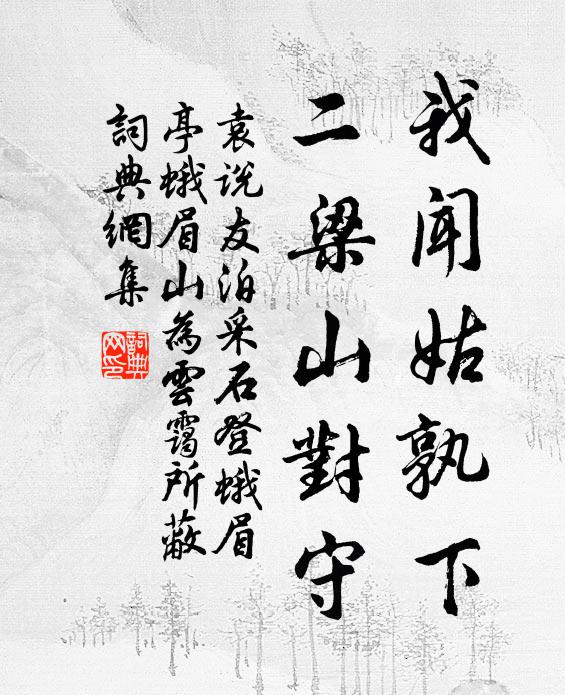 我聞姑孰下
二梁山對守
袁说友泊采石登蛾眉
亭蛾眉山為雲靄所蔽
詞典網集
詞典网印